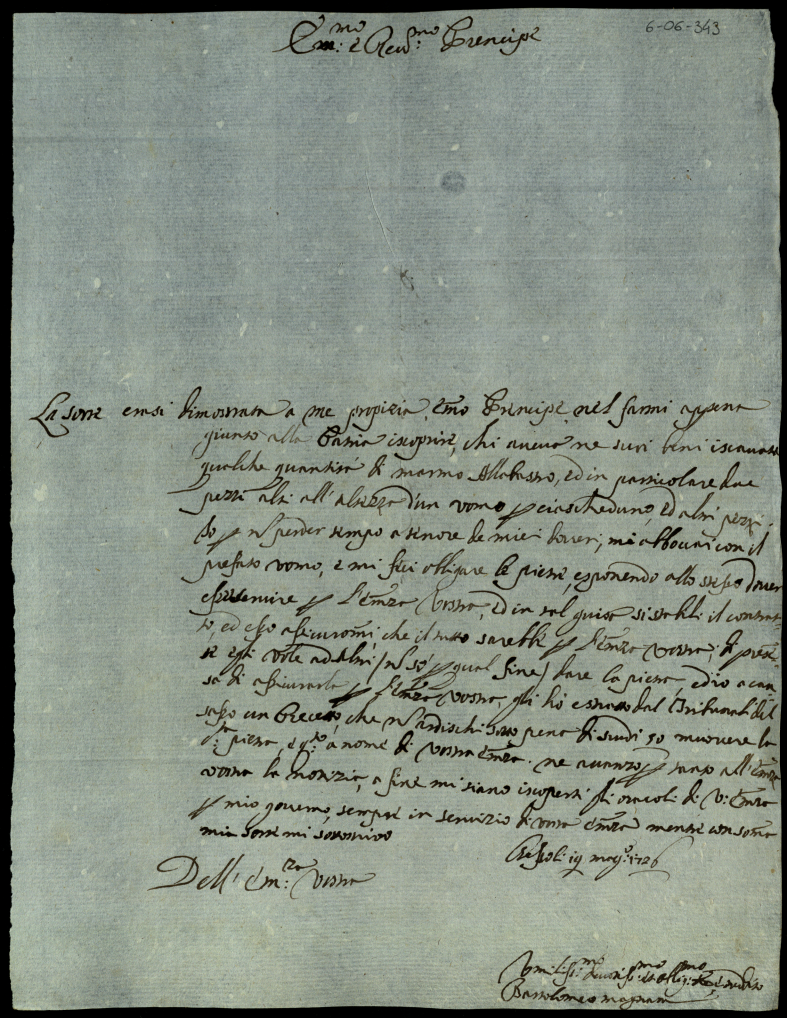 6-06-343
Em:mo e Rev:mo Prencipe
La sorte erasi dimostrata a me propizia, Emo Prencipe, nel farmi appena
giunto alla Patria iscoprire, chi aveva ne suoi beni iscavato
qualche quantità di marmo Allabastro, ed in particolare due
pezzi alti all'altezza d'un vomo p ciascheduno, ed altri pezzi.
Io p n perder tempo a tenore de miei doveri, mi abboccai con il
prefato vomo, e mi feci obligare le pietre, esponendo allo stesso dover
esse servire p l'Emza Vostra, ed in tal guisa si stabilì il contrat-
to, ed esso assicuromi, che il tutto sarebbe p l'Emza Vostra; di presẽ
te egli vole ad altri (n sò p qual fine) dare la pietra, ed io a cau
sa di assicurarla p l'Emza Vostra, gli hò estratto dal Tribunale del
un Precetto, che n ardischi sotto pena di scudi 50 muovere la
pietra, e a nome di Vostra Emza. ne avanzo p tanto all'Emza
Vostra la notizia, a fine mi siano iscoperti gli oracoli di V: Emza
p mio governo, sempre in servizio di Vostra Emza mentre con soma
mia sorte mi sotoscrivo
Ascoli: 19 mag:o 1726
Dell'Em:za Vostra
Vmiliss:mo devotis:mo ed oblig:mo
Bartolomeo magnani